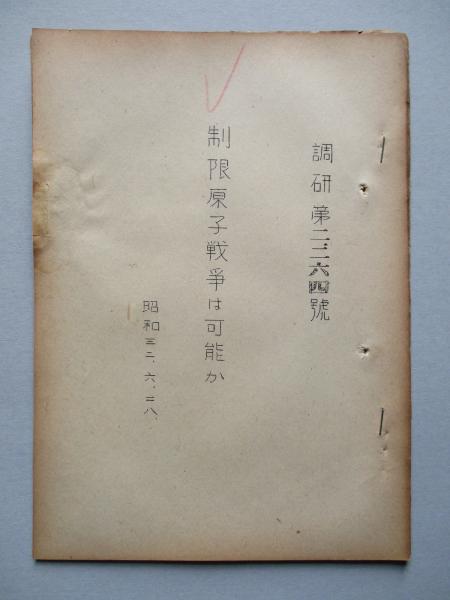 調研第二二六四號
制限原子戦爭は可能か
昭和三二、六、二八、